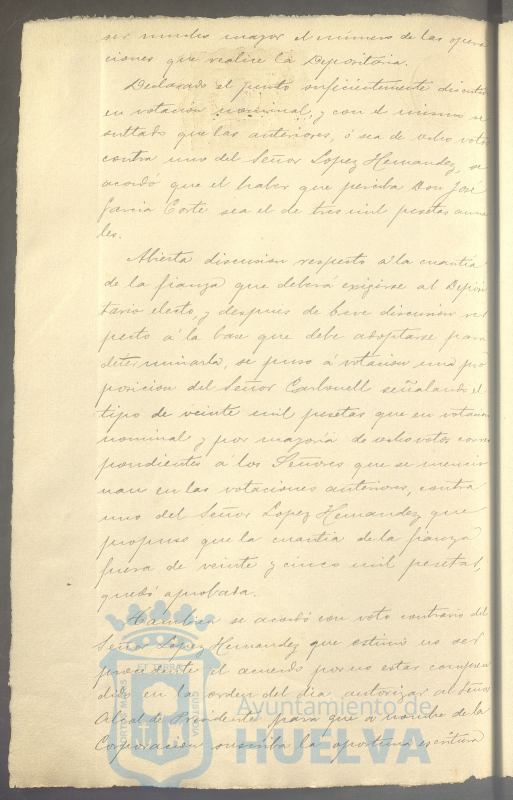 ser mucho mayor el número de las opera
ciones que realice la Depositaría.
Declarado el punto suficientemente discutido
en votación nominal, y con el mismo re
sultado que las anteriores, ó sea de ocho votos
contra uno del Señor Lopez Hernandez, se
acordó que el haber que perciba Don José
García Corte sea el de tres mil pesetas anua
les.
Abierta discusion respecto á la cuantía
de la fianza que deberá exigirse al Deposi
tario electo, y despues de breve discusión res
pecto á la base que debe adoptarse para
determinarla, se puso á votacion una pro
posicion del Señor Carbonell señalando el
tipo de veinte mil pesetas que en votacion
nominal y por mayoría de ocho votos corres
pondientes á los Señores que se mencio
nan en las votaciones anteriores, contra
uno del Señor Lopez Hernandez que
propuso que la cuantía de la fianza
fuera de veinte y cinco mil pesetas,
quedó aprobada.
Tambien se acordó con voto contrario del
Señor Lopez Hernandez que estimó no ser
procedente el acuerdo por no estar compren
dido en la orden del dia, autorizar al Señor
Alcalde Presidente para que á nombre de la
Corporación suscriba la oportuna escritura
PORTUS MARIS ET TERRAE CUSTODIA
Ayuntamiento de
HUELVA